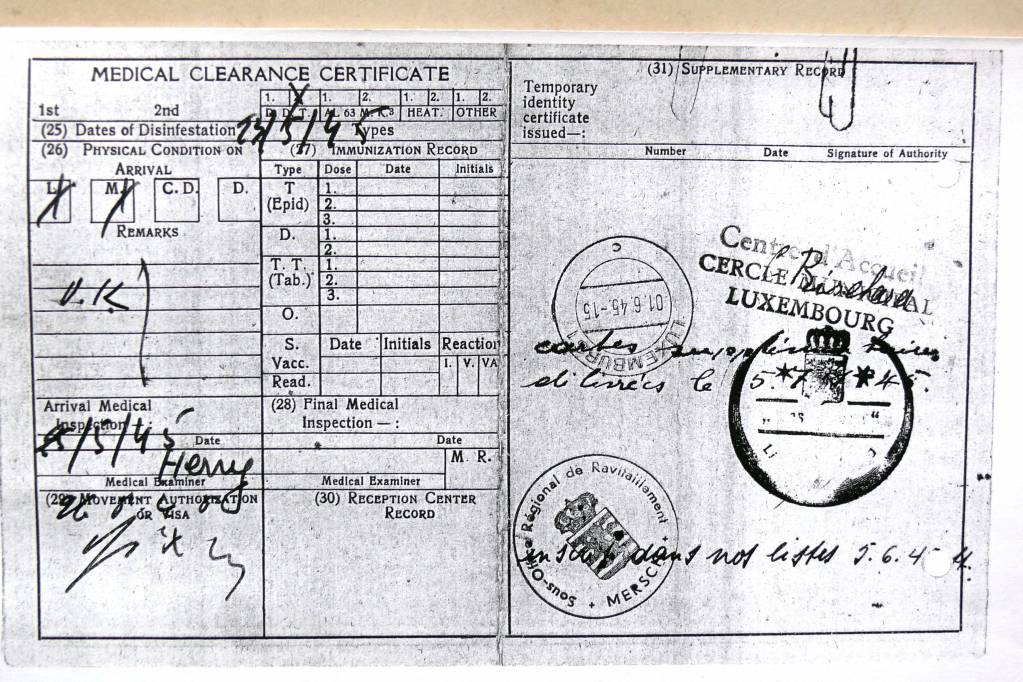 MEDICAL CLEARANCE CERTIFICATE
1. 2. 1. 2. 1. 2. 1. 2.
1st 2nd D. D. T. AL. 63 M. K.3 HEAT. OTHER
(25) Dates of Disinfestation 25/5/45 Types
(26) PHYSICAL CONDITION ON
ARRIVAL
L. M. C. D. D.
REMARKS
O.K.
(27) IMMUNIZATION RECORD
Type Dose Date Initials
T
(Epid)
1.
2.
3.
D.
1.
2.
T. T.
(Tab.)
1.
2.
3.
O.
S.
Vacc.
Read.
Date Initials Reaction
I. V. VA
Arrival Medical
Inspection — :
25/5/45
Date
Henry
Medical Examiner
(28) Final Medical
Inspection — :
Date
M. R.
Medical Examiner
(29) MOVEMENT AUTHORIZATION
OR VISA
(30) RECEPTION CENTER
RECORD
(31) SUPPLEMENTARY RECORD
Temporary
identity
certificate
issued—:
Number Date Signature of Authority
Centre d'Accueil
CERCLE MUNICIPAL
LUXEMBOURG
01.6.45.-15
LUXEMBURG 1
cartes supplémentaires
délivrées le 5. 45.
Sous-Office Régional de Ravitaillement
+ MERSCH +
inscrit dans nos listes 5.6.45